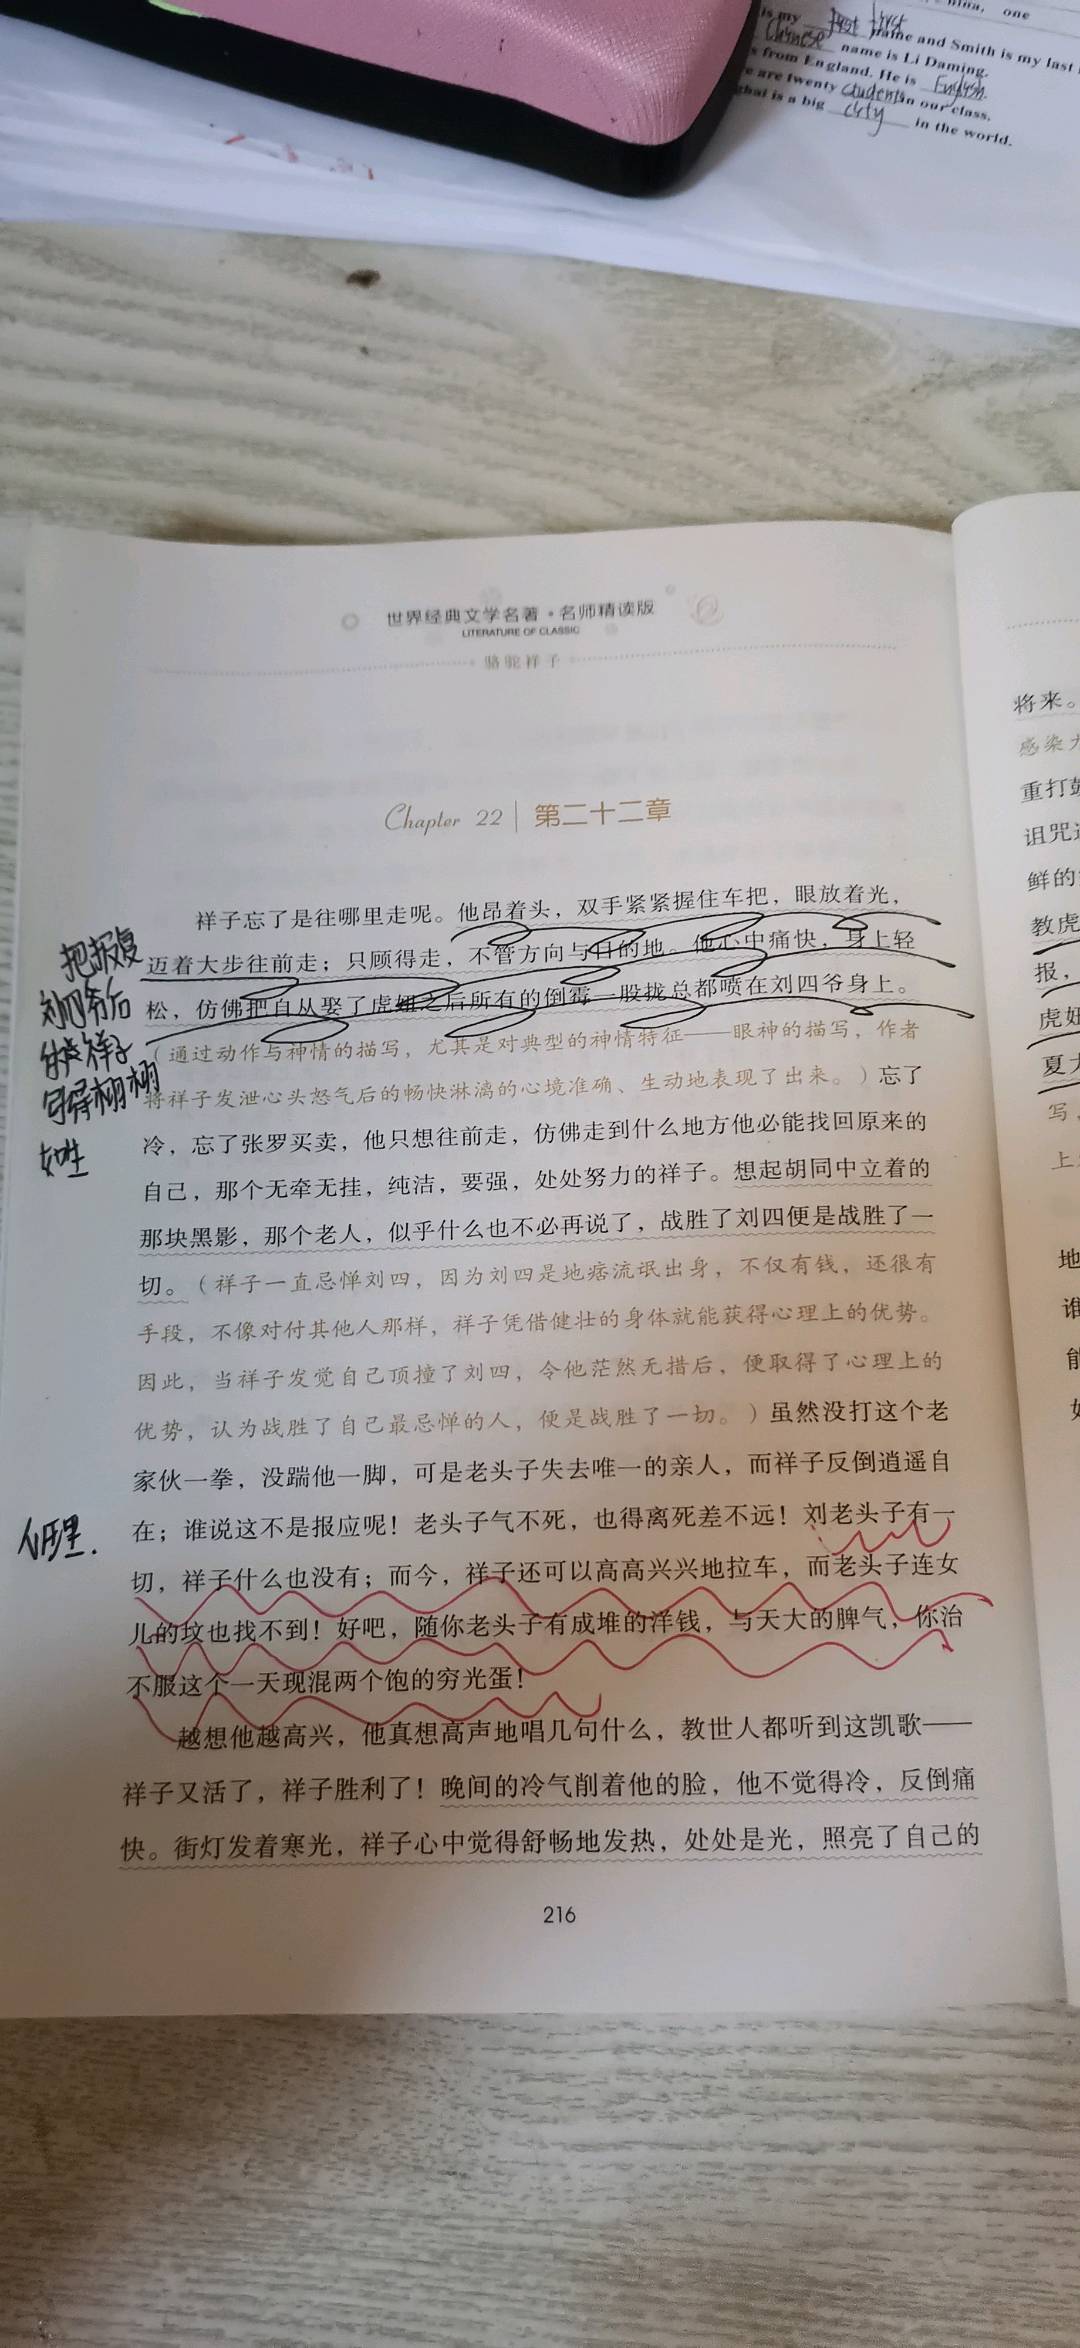 one
is my first first name and Smith is my last
Chinese name is Li Daming.
s from England. He is English.
e are twenty students in our class.
ghai is a big city in the world.
世界经典文学名著·名师精读版
LITERATURE OF CLASSIC
骆驼祥子
Chapter 22 | 第二十二章
祥子忘了是往哪里走呢。他昂着头，双手紧紧握住车把，眼放着光，
迈着大步往前走；只顾得走，不管方向与目的地。他心中痛快，身上轻
松，仿佛把自从娶了虎妞之后所有的倒霉一股拢总都喷在刘四爷身上。
（通过动作与神情的描写，尤其是对典型的神情特征——眼神的描写，作者
将祥子发泄心头怒气后的畅快淋漓的心境准确、生动地表现了出来。）忘了
冷，忘了张罗买卖，他只想往前走，仿佛走到什么地方他必能找回原来的
自己，那个无牵无挂，纯洁，要强，处处努力的祥子。想起胡同中立着的
那块黑影，那个老人，似乎什么也不必再说了，战胜了刘四便是战胜了一
切。（祥子一直忌惮刘四，因为刘四是地痞流氓出身，不仅有钱，还很有
手段，不像对付其他人那样，祥子凭借健壮的身体就能获得心理上的优势。
因此，当祥子发觉自己顶撞了刘四，令他茫然无措后，便取得了心理上的
优势，认为战胜了自己最忌惮的人，便是战胜了一切。）虽然没打这个老
家伙一拳，没踹他一脚，可是老头子失去唯一的亲人，而祥子反倒逍遥自
在；谁说这不是报应呢！老头子气不死，也得离死差不远！刘老头子有一
切，祥子什么也没有；而今，祥子还可以高高兴兴地拉车，而老头子连女
儿的坟也找不到！好吧，随你老头子有成堆的洋钱，与天大的脾气，你治
不服这个一天现混两个饱的穷光蛋！
越想他越高兴，他真想高声地唱几句什么，教世人都听到这凯歌——
祥子又活了，祥子胜利了！晚间的冷气削着他的脸，他不觉得冷，反倒痛
快。街灯发着寒光，祥子心中觉得舒畅地发热，处处是光，照亮了自己的
216
把报复
刘四爷后
祥子
写得栩栩
如生
心理.
将来。
感染
重打
诅咒
鲜的
教虎
报，
虎妞
夏
写，
上
地
谁
能